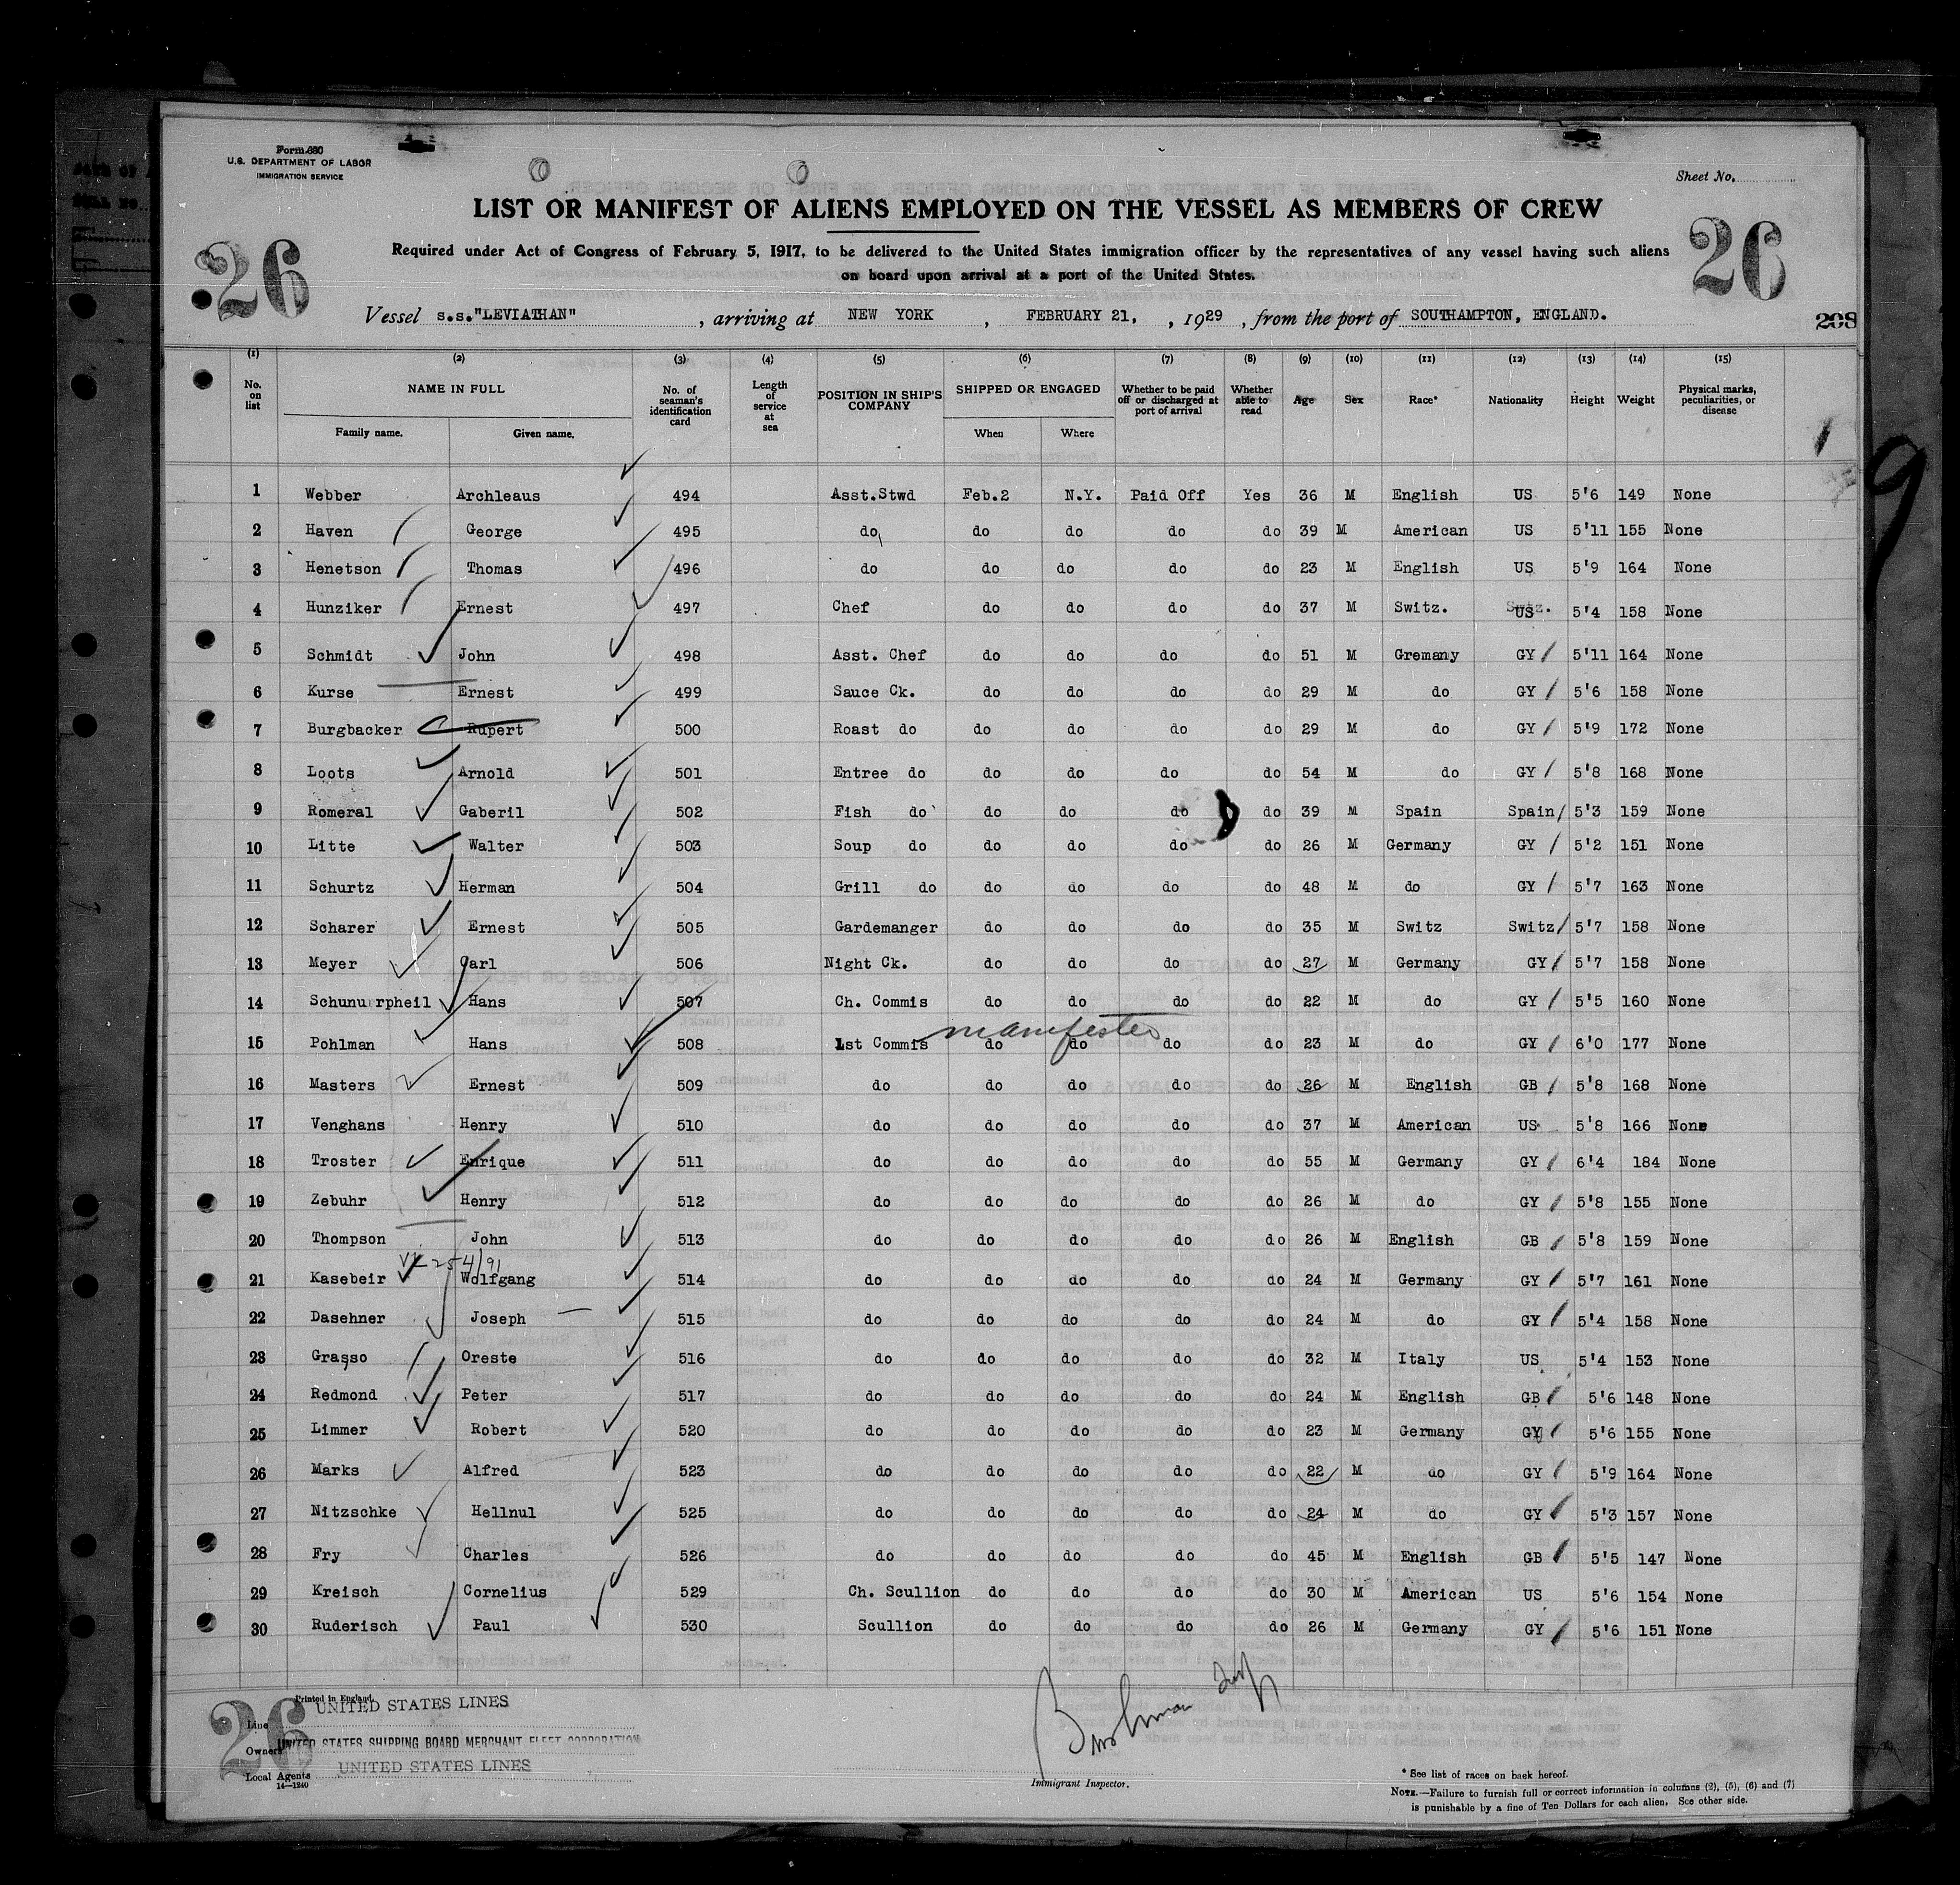 Form 680
U.S. DEPARTMENT OF LABOR
IMMIGRATION SERVICE
Sheet No.
LIST OR MANIFEST OF ALIENS EMPLOYED ON THE VESSEL AS MEMBERS OF CREW
26
26
Required under Act of Congress of February 5, 1917, to be delivered to the United States immigration officer by the representatives of any vessel having such aliens
on board upon arrival at a port of the United States.
Vessel s.s."LEVIATHAN" , arriving at NEW YORK , FEBRUARY 21, , 1929 , from the port of SOUTHAMPTON, ENGLAND.
208
(1) (2) (3) (4) (5) (6) (7) (8) (9) (10) (11) (12) (13) (14) (15)
No. on list NAME IN FULL Family name. Given name. No. of seaman's identification card Length of service at sea POSITION IN SHIP'S COMPANY SHIPPED OR ENGAGED When Where Whether to be paid off or discharged at port of arrival Whether able to read Age Sex Race* Nationality Height Weight Physical marks, peculiarities, or disease
1 Webber Archleaus 494 Asst.Stwd Feb.2 N.Y. Paid Off Yes 36 M English US 5'6 149 None
2 Haven George 495 do do do do do 39 M American US 5'11 155 None
3 Henetson Thomas 496 do do do do do 23 M English US 5'9 164 None
4 Hunziker Ernest 497 Chef do do do do 37 M Switz. US 5'4 158 None
5 Schmidt John 498 Asst. Chef do do do do 51 M Gremany GY 5'11 164 None
6 Kurse Ernest 499 Sauce Ck. do do do do 29 M do GY 5'6 158 None
7 Burgbacker Rupert 500 Roast do do do do do 29 M do GY 5'9 172 None
8 Loots Arnold 501 Entree do do do do do 54 M do GY 5'8 168 None
9 Romeral Gaberil 502 Fish do do do do do 39 M Spain Spain 5'3 159 None
10 Litte Walter 503 Soup do do do do do 26 M Germany GY 5'2 151 None
11 Schurtz Herman 504 Grill do do do do do 48 M do GY 5'7 163 None
12 Scharer Ernest 505 Gardemanger do do do do 35 M Switz Switz 5'7 158 None
13 Meyer Carl 506 Night Ck. do do do do 27 M Germany GY 5'7 158 None
14 Schunurpheil Hans 507 Ch. Commis do do do do 22 M do GY 5'5 160 None
manifested
15 Pohlman Hans 508 1st Commis do do do do 23 M do GY 6'0 177 None
16 Masters Ernest 509 do do do do do 26 M English GB 5'8 168 None
17 Venghans Henry 510 do do do do do 37 M American US 5'8 166 None
18 Troster Enrique 511 do do do do do 55 M Germany GY 6'4 184 None
19 Zebuhr Henry 512 do do do do do 26 M do GY 5'8 155 None
20 Thompson John 513 do do do do do 26 M English GB 5'8 159 None
21 Kasebeir Wolfgang 514 do do do do do 24 M Germany GY 5'7 161 None
22 Dasehner Joseph 515 do do do do do 24 M do GY 5'4 158 None
23 Grasso Oreste 516 do do do do do 32 M Italy US 5'4 153 None
24 Redmond Peter 517 do do do do do 24 M English GB 5'6 148 None
25 Limmer Robert 520 do do do do do 23 M Germany GY 5'6 155 None
26 Marks Alfred 523 do do do do do 22 M do GY 5'9 164 None
27 Nitzschke Hellnul 525 do do do do do 24 M do GY 5'3 157 None
28 Fry Charles 526 do do do do do 45 M English GB 5'5 147 None
29 Kreisch Cornelius 529 Ch. Scullion do do do do 30 M American US 5'6 154 None
30 Ruderisch Paul 530 Scullion do do do do 26 M Germany GY 5'6 151 None
26
Printed in England.
Line UNITED STATES LINES
Owners UNITED STATES SHIPPING BOARD MERCHANT FLEET CORPORATION
Local Agents UNITED STATES LINES
14—1240
Immigrant Inspector.
* See list of races on back hereof.
NOTE.—Failure to furnish full or correct information in columns (2), (5), (6) and (7)
is punishable by a fine of Ten Dollars for each alien. See other side.